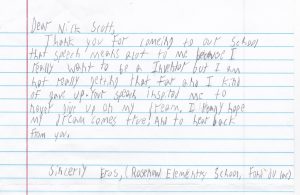 Dear Nick Scott,
Thank you for comeing to our School
that speech means alot to me because I
really want to be a Inventor but I am
not really getting that far and I kind
of gave up. Your speech inspired me to
never give up on my dream. I really hope
my dream comes true! And to hear back
from you.
Sincerly Eros, (Rosenow Elementry School, Fond du lac)